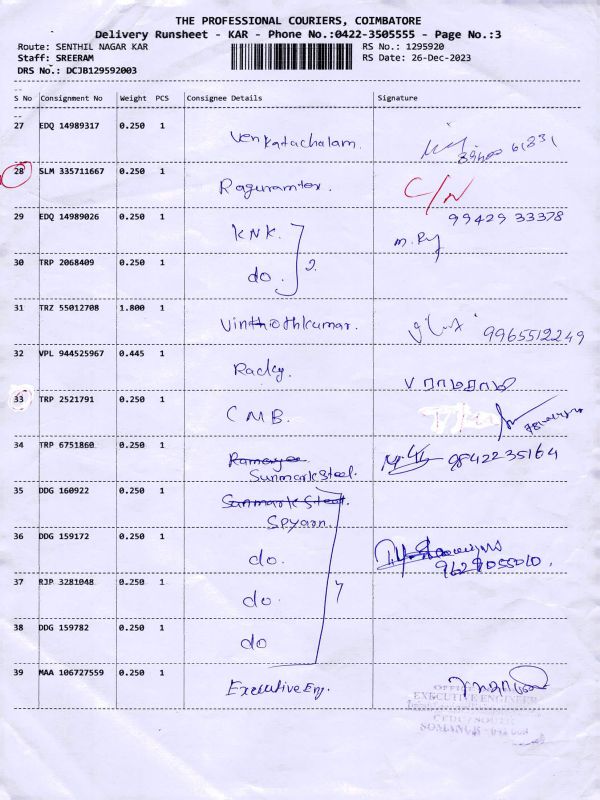 THE PROFESSIONAL COURIERS, COIMBATORE
Delivery Runsheet - KAR - Phone No.:0422-3505555 - Page No.:3
Route: SENTHIL NAGAR KAR RS No.: 1295920
Staff: SREERAM RS Date: 26-Dec-2023
DRS No.: DCJB129592003
S No Consignment No Weight PCS Consignee Details Signature
27 EDQ 14989317 0.250 1 Venkatachalam.
28 SLM 335711667 0.250 1 C/N
29 EDQ 14989026 0.250 1 KNK. 99429 33378
30 TRP 2068409 0.250 1 do. 2.
31 TRZ 55012708 1.800 1 Vinthiothkumar. 9965512249
32 VPL 944525967 0.445 1
33 TRP 2521791 0.250 1 CMB.
34 TRP 6751860 0.250 1 Sunmark Steel. 9842235164
35 DDG 160922 0.250 1 Sunmark Steel.
Spyarn.
36 DDG 159172 0.250 1 do.
37 RJP 3281048 0.250 1 do.
38 DDG 159782 0.250 1 do
39 MAA 106727559 0.250 1 Executive Eng.
EXECUTIVE ENGINEER